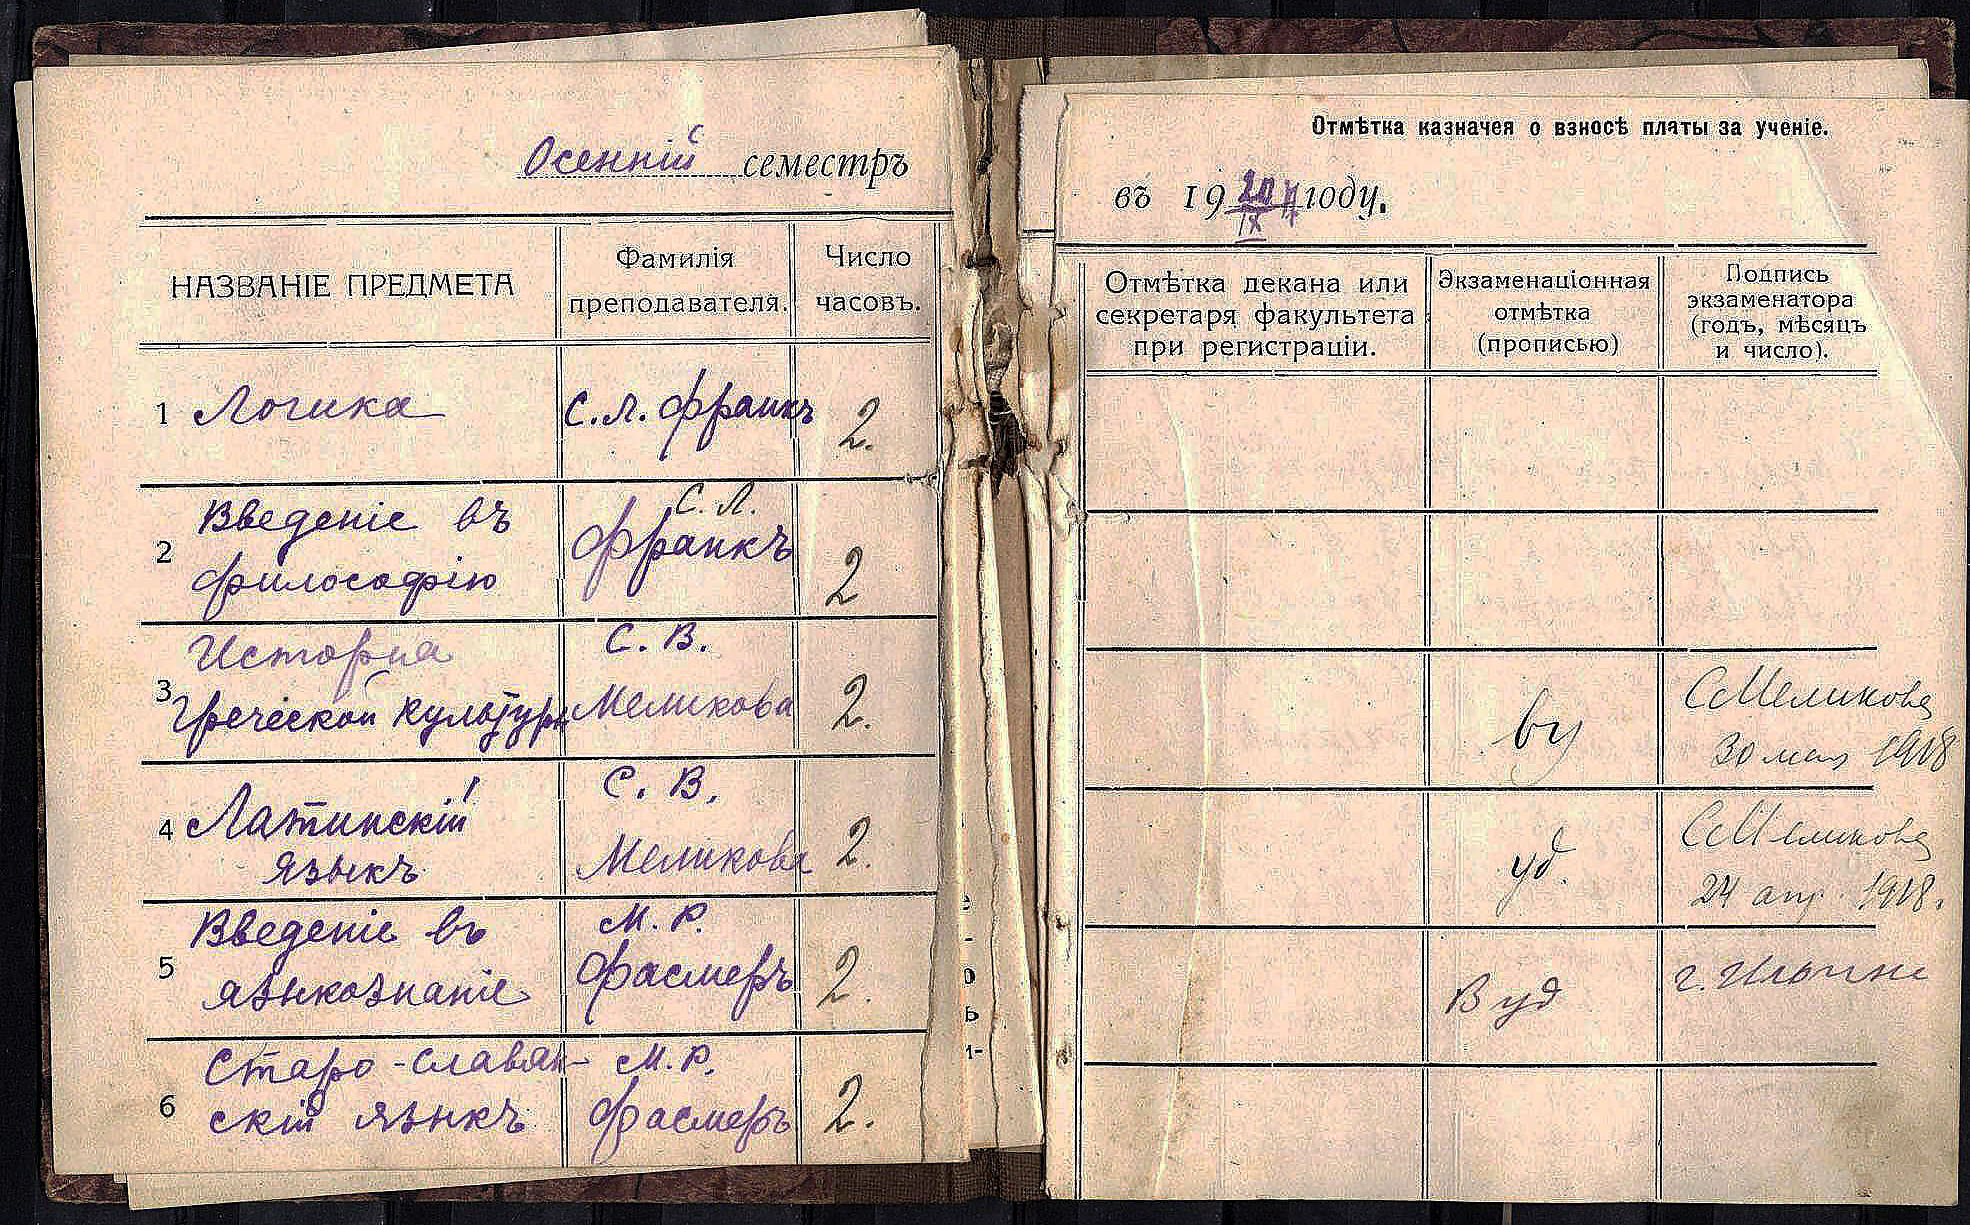 Осенній семестръ
НАЗВАНІЕ ПРЕДМЕТА
Фамилія
преподавателя.
Число
часовъ.
1 Логика С. Л. Франкъ 2.
2 Введеніе въ
философію
С. Л.
Франкъ
2
3 Исторія
Греческой культуры
С. В.
Меликова
2.
4 Латинскій
языкъ
С. В.
Меликова
2.
5 Введеніе въ
языкознаніе
М. Р.
Фасмеръ
2.
6 Старо-славян-
скій языкъ
М. Р.
Фасмеръ
2.
Отмѣтка казначея о взносѣ платы за ученіе.
въ 19 году.
IX
Отмѣтка декана или
секретаря факультета
при регистраціи.
Экзаменаціонная
отмѣтка
(прописью)
Подпись
экзаменатора
(годъ, мѣсяцъ
и число).
ву
СМеликова
30 мая 1918
уд.
СМеликова
24 апр. 1918.
В уд
Г. Ильинс